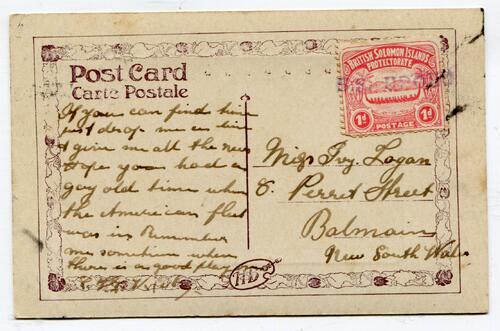 Post Card
Carte Postale
BRITISH SOLOMON ISLANDS
PROTECTORATE
1d 1d
POSTAGE
If you can find time
just drop me a line
& give me all the news
Hope you had a
gay old time when
the American fleet
was in Remember
me sometime when
there is a good play
Miss Ivy Logan
8. Perret Street
Balmain
New South Wales
HB